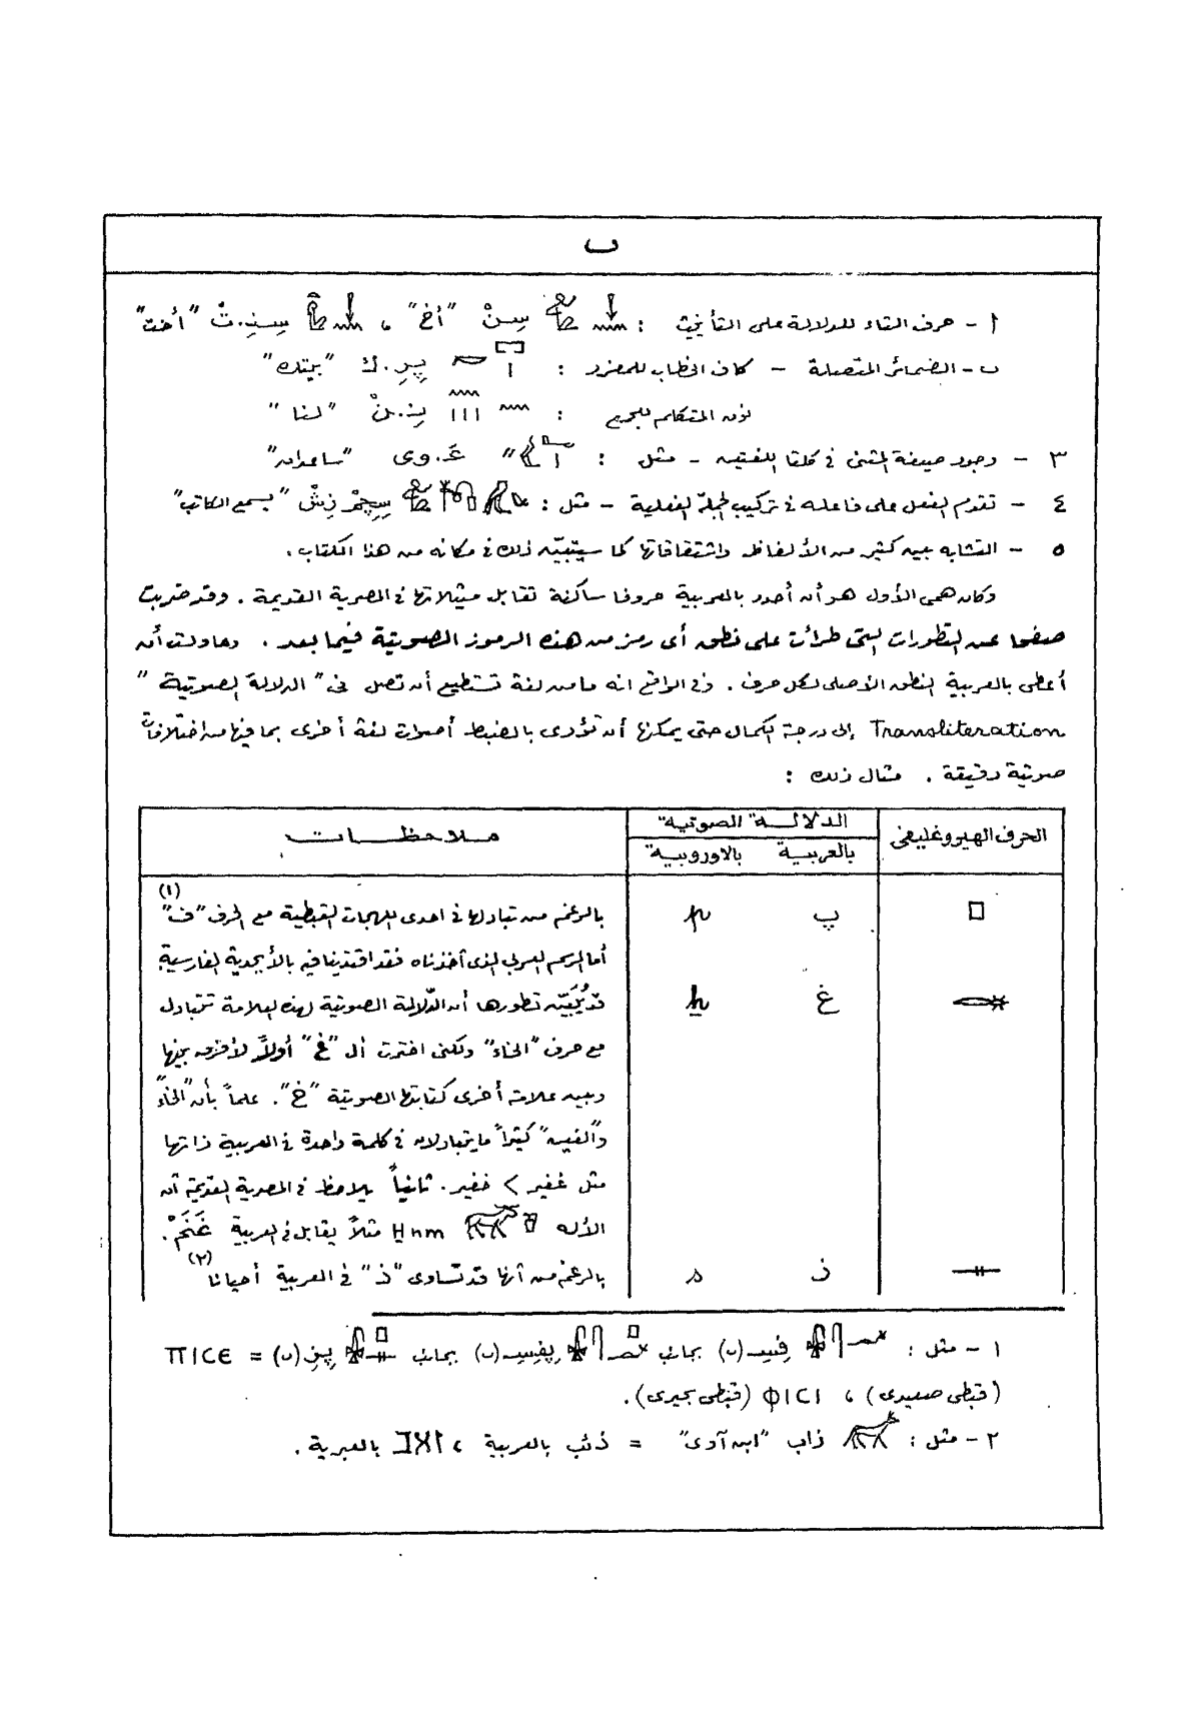 ب
أ - حرف التاء للدلالة على التأنيث : سِنْ "أخ" ، سِنِ.تْ "أخت"
ب - الضمائر المتصلة - كاف الخطاب للمفرد : پِرِ.ك "بيتك"
نون المتكلم للجمع : نِ.نْ "لنا"
٣ - وجود صيغة المثنى فى كلتا اللغتين - مثل : عَ.وى "ساعدان"
٤ - تقدم الفعل على فاعله فى تركيب الجملة الفعلية - مثل : سِچِمْ زِشْ "يسمع الكاتب"
٥ - التشابه بين كثير من الألفاظ واشتقاقاتها كما سيتبيّن ذلك فى مكانه من هذا الكتاب .
وكان همى الأول هو أن أحدد بالعربية حروفا ساكنة تقابل مثيلاتها فى المصرية القديمة . وقد ضربت
صفحا عن التطورات التى طرأت على نطق أى رمز من هذه الرموز الصوتية فيما بعد . وحاولت أن
أعطى بالعربية النطق الأصلى لكل حرف . وفى الواقع انه ما من لغة تستطيع أن تصل فى "الدلالة الصوتية"
Transliteration إلى درجة الكمال حتى يمكنها أن تؤدى بالضبط أصوات لغة أخرى بما فيها من اختلافات
صوتية دقيقة . مثال ذلك :
الحرف الهيروغليفى الدلالة الصوتية ملاحظات
بالعربية بالاوروبية
پ p بالرغم من تبادلها فى احدى اللهجات القبطية مع الحرف "ف" (١)
أما الرسم العربى الذى أخذناه فقد اقتدينا فيه بالأبجدية الفارسية
غ ẖ قد يُبَيّن تطورها أن الدّلالة الصوتية لهذه العلامة تتبادل
مع حرف "الخاء" ولكنى اخترت الـ "غ" أولاً لأفرق بينها
وبين علامة أخرى كتابتها الصوتية "خ". علماً بأن "الخاء"
و"الغين" كثيراً ما يتبادلان فى كلمة واحدة فى العربية ذاتها
مثل غفير > خفير . ثانياً يلاحظ فى المصرية القديمة أن
الأله H̱nm مثلاً يقابل فى العربية غَنَمْ .
ز s بالرغم من أنها قد تساوى "ذ" فى العربية أحيانا (٢)
١ - مثل : فِسِـ(ى) بجانب پفِسِـ(ى) بجانب پِزِ(ى) = ΠΙCЄ
(قبطى صعيدى) ، ΦΙCΙ (قبطى بحيرى) .
٢ - مثل : زاب "ابن آوى" = ذئب بالعربية ، זאב بالعبرية .